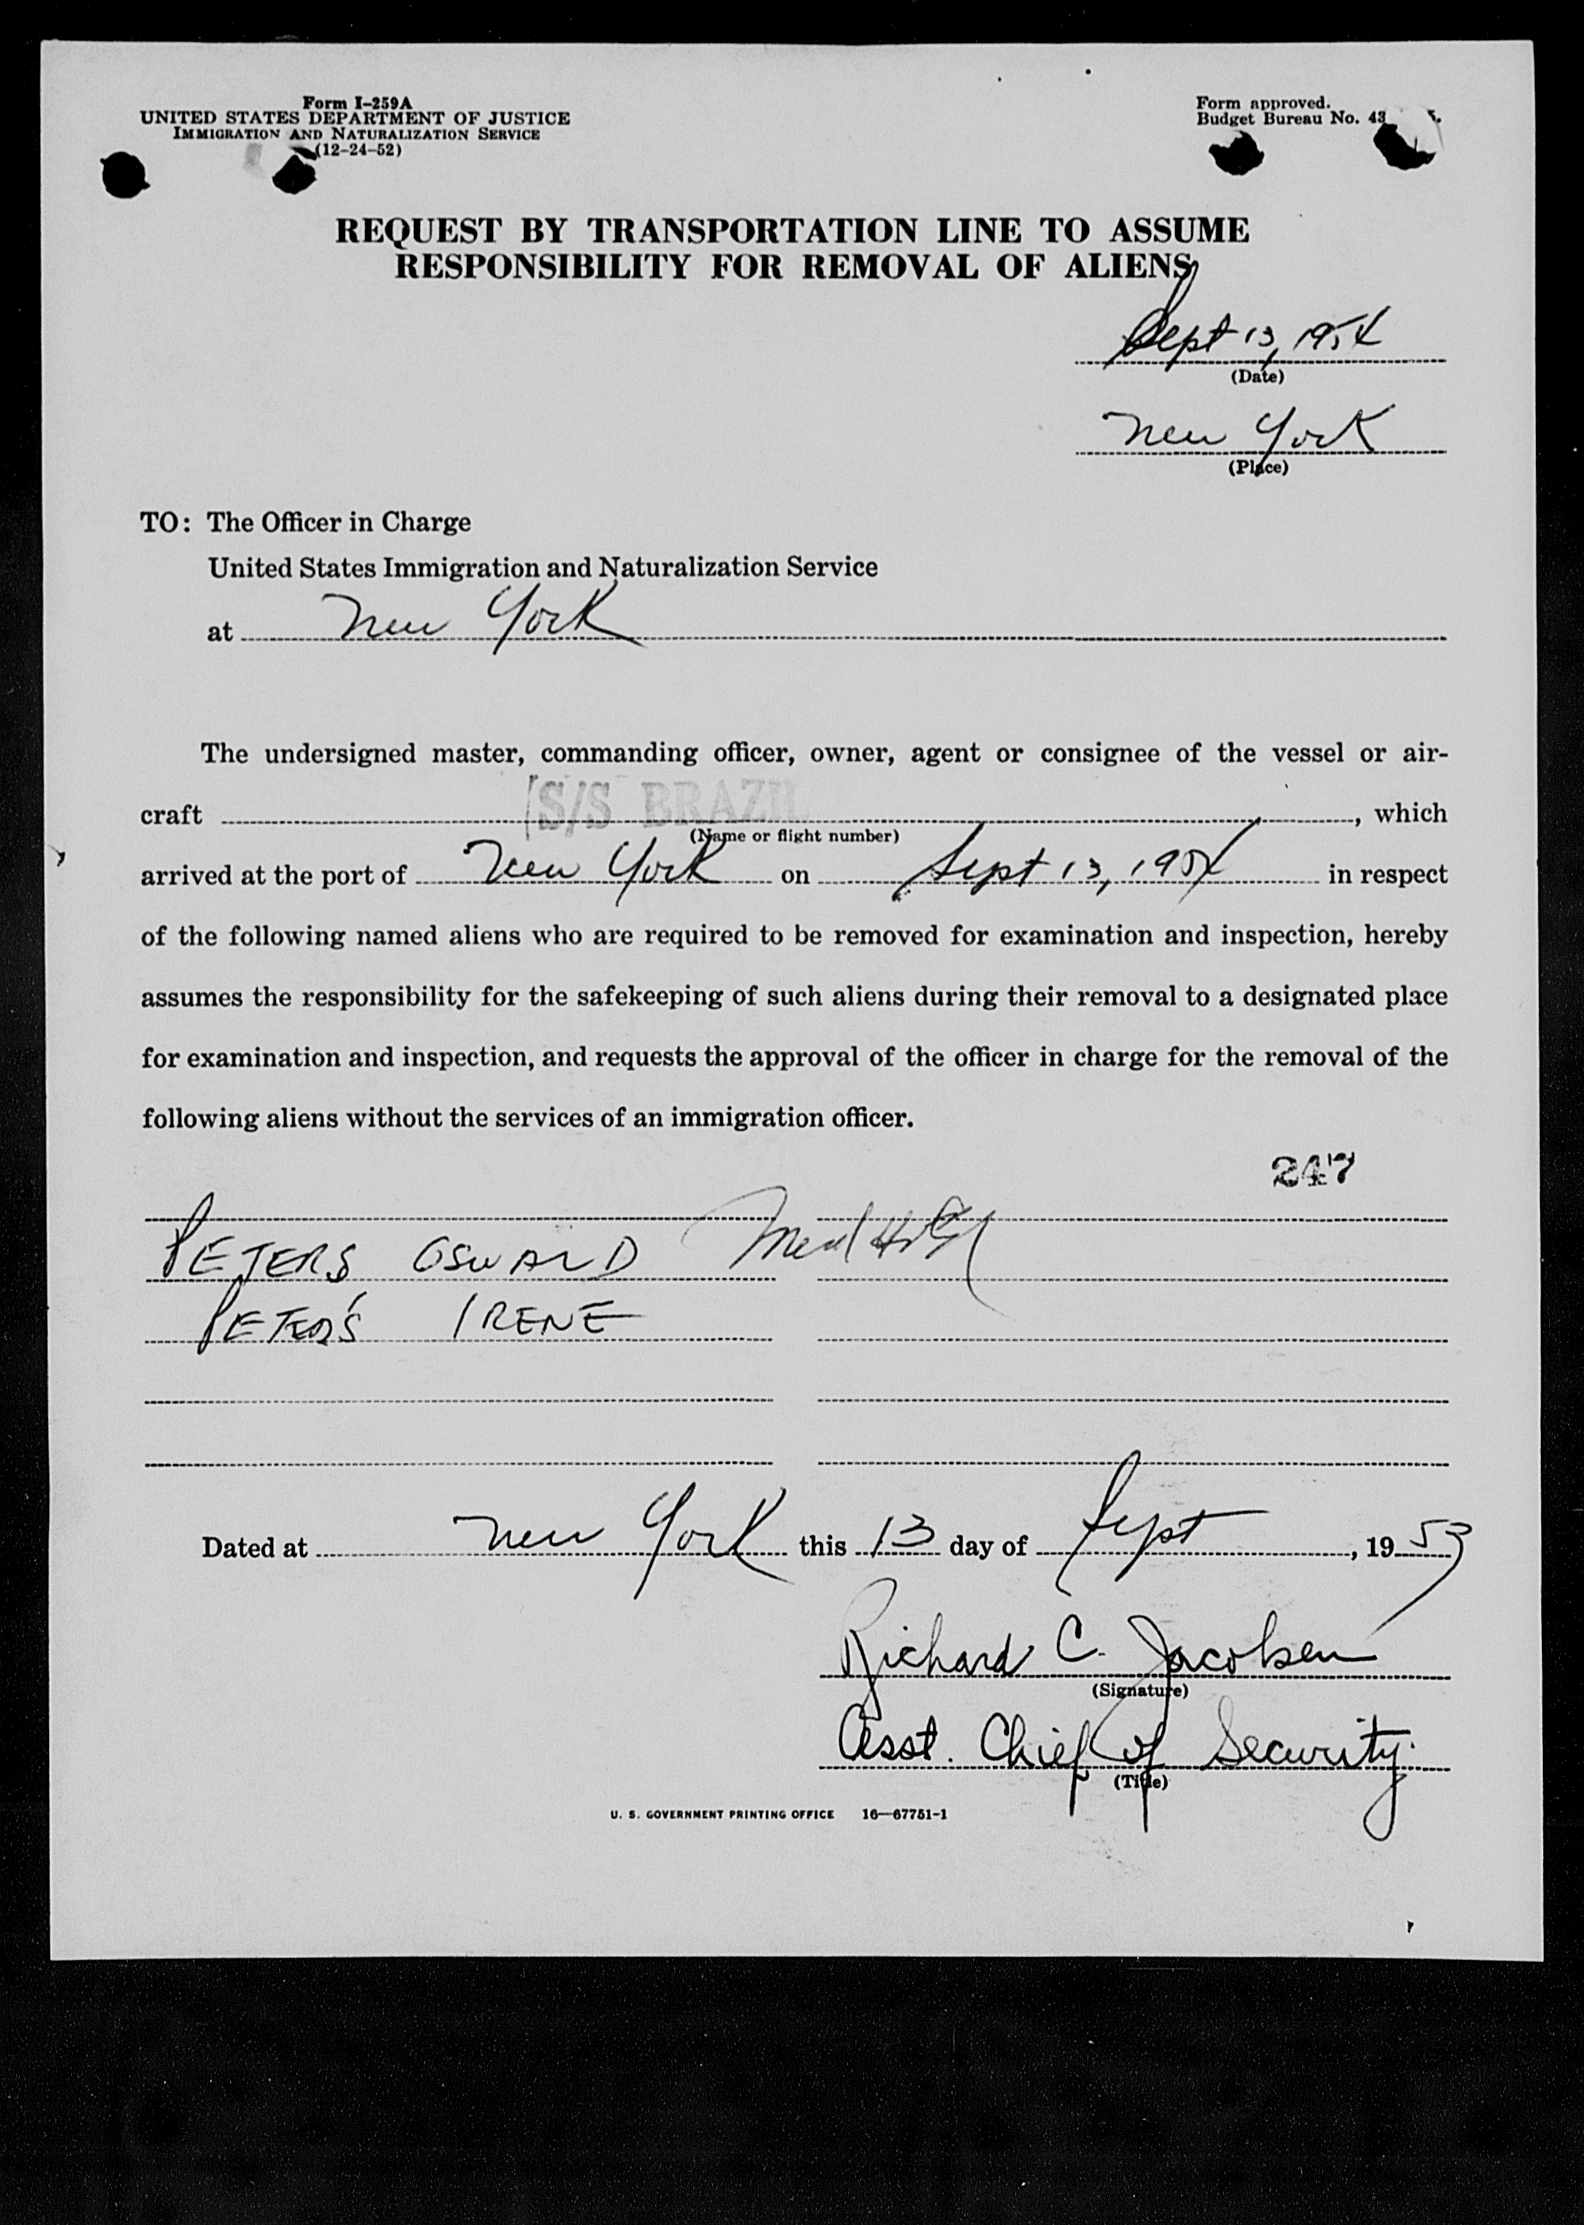 Form I-259A
UNITED STATES DEPARTMENT OF JUSTICE
IMMIGRATION AND NATURALIZATION SERVICE
(12-24-52)
Form approved.
Budget Bureau No. 43
REQUEST BY TRANSPORTATION LINE TO ASSUME
RESPONSIBILITY FOR REMOVAL OF ALIENS
Sept 13, 1954
(Date)
New York
(Place)
TO: The Officer in Charge
United States Immigration and Naturalization Service
at New York
The undersigned master, commanding officer, owner, agent or consignee of the vessel or air-
craft S/S BRAZIL, which
(Name or flight number)
arrived at the port of New York on Sept 13, 1954 in respect
of the following named aliens who are required to be removed for examination and inspection, hereby
assumes the responsibility for the safekeeping of such aliens during their removal to a designated place
for examination and inspection, and requests the approval of the officer in charge for the removal of the
following aliens without the services of an immigration officer.
247
PETERS OSWALD Med
PETERS IRENE
Dated at New York this 13 day of Sept, 1953
Richard C. Jacobsen
(Signature)
Asst. Chief of Security
(Title)
U. S. GOVERNMENT PRINTING OFFICE 16—67751-1